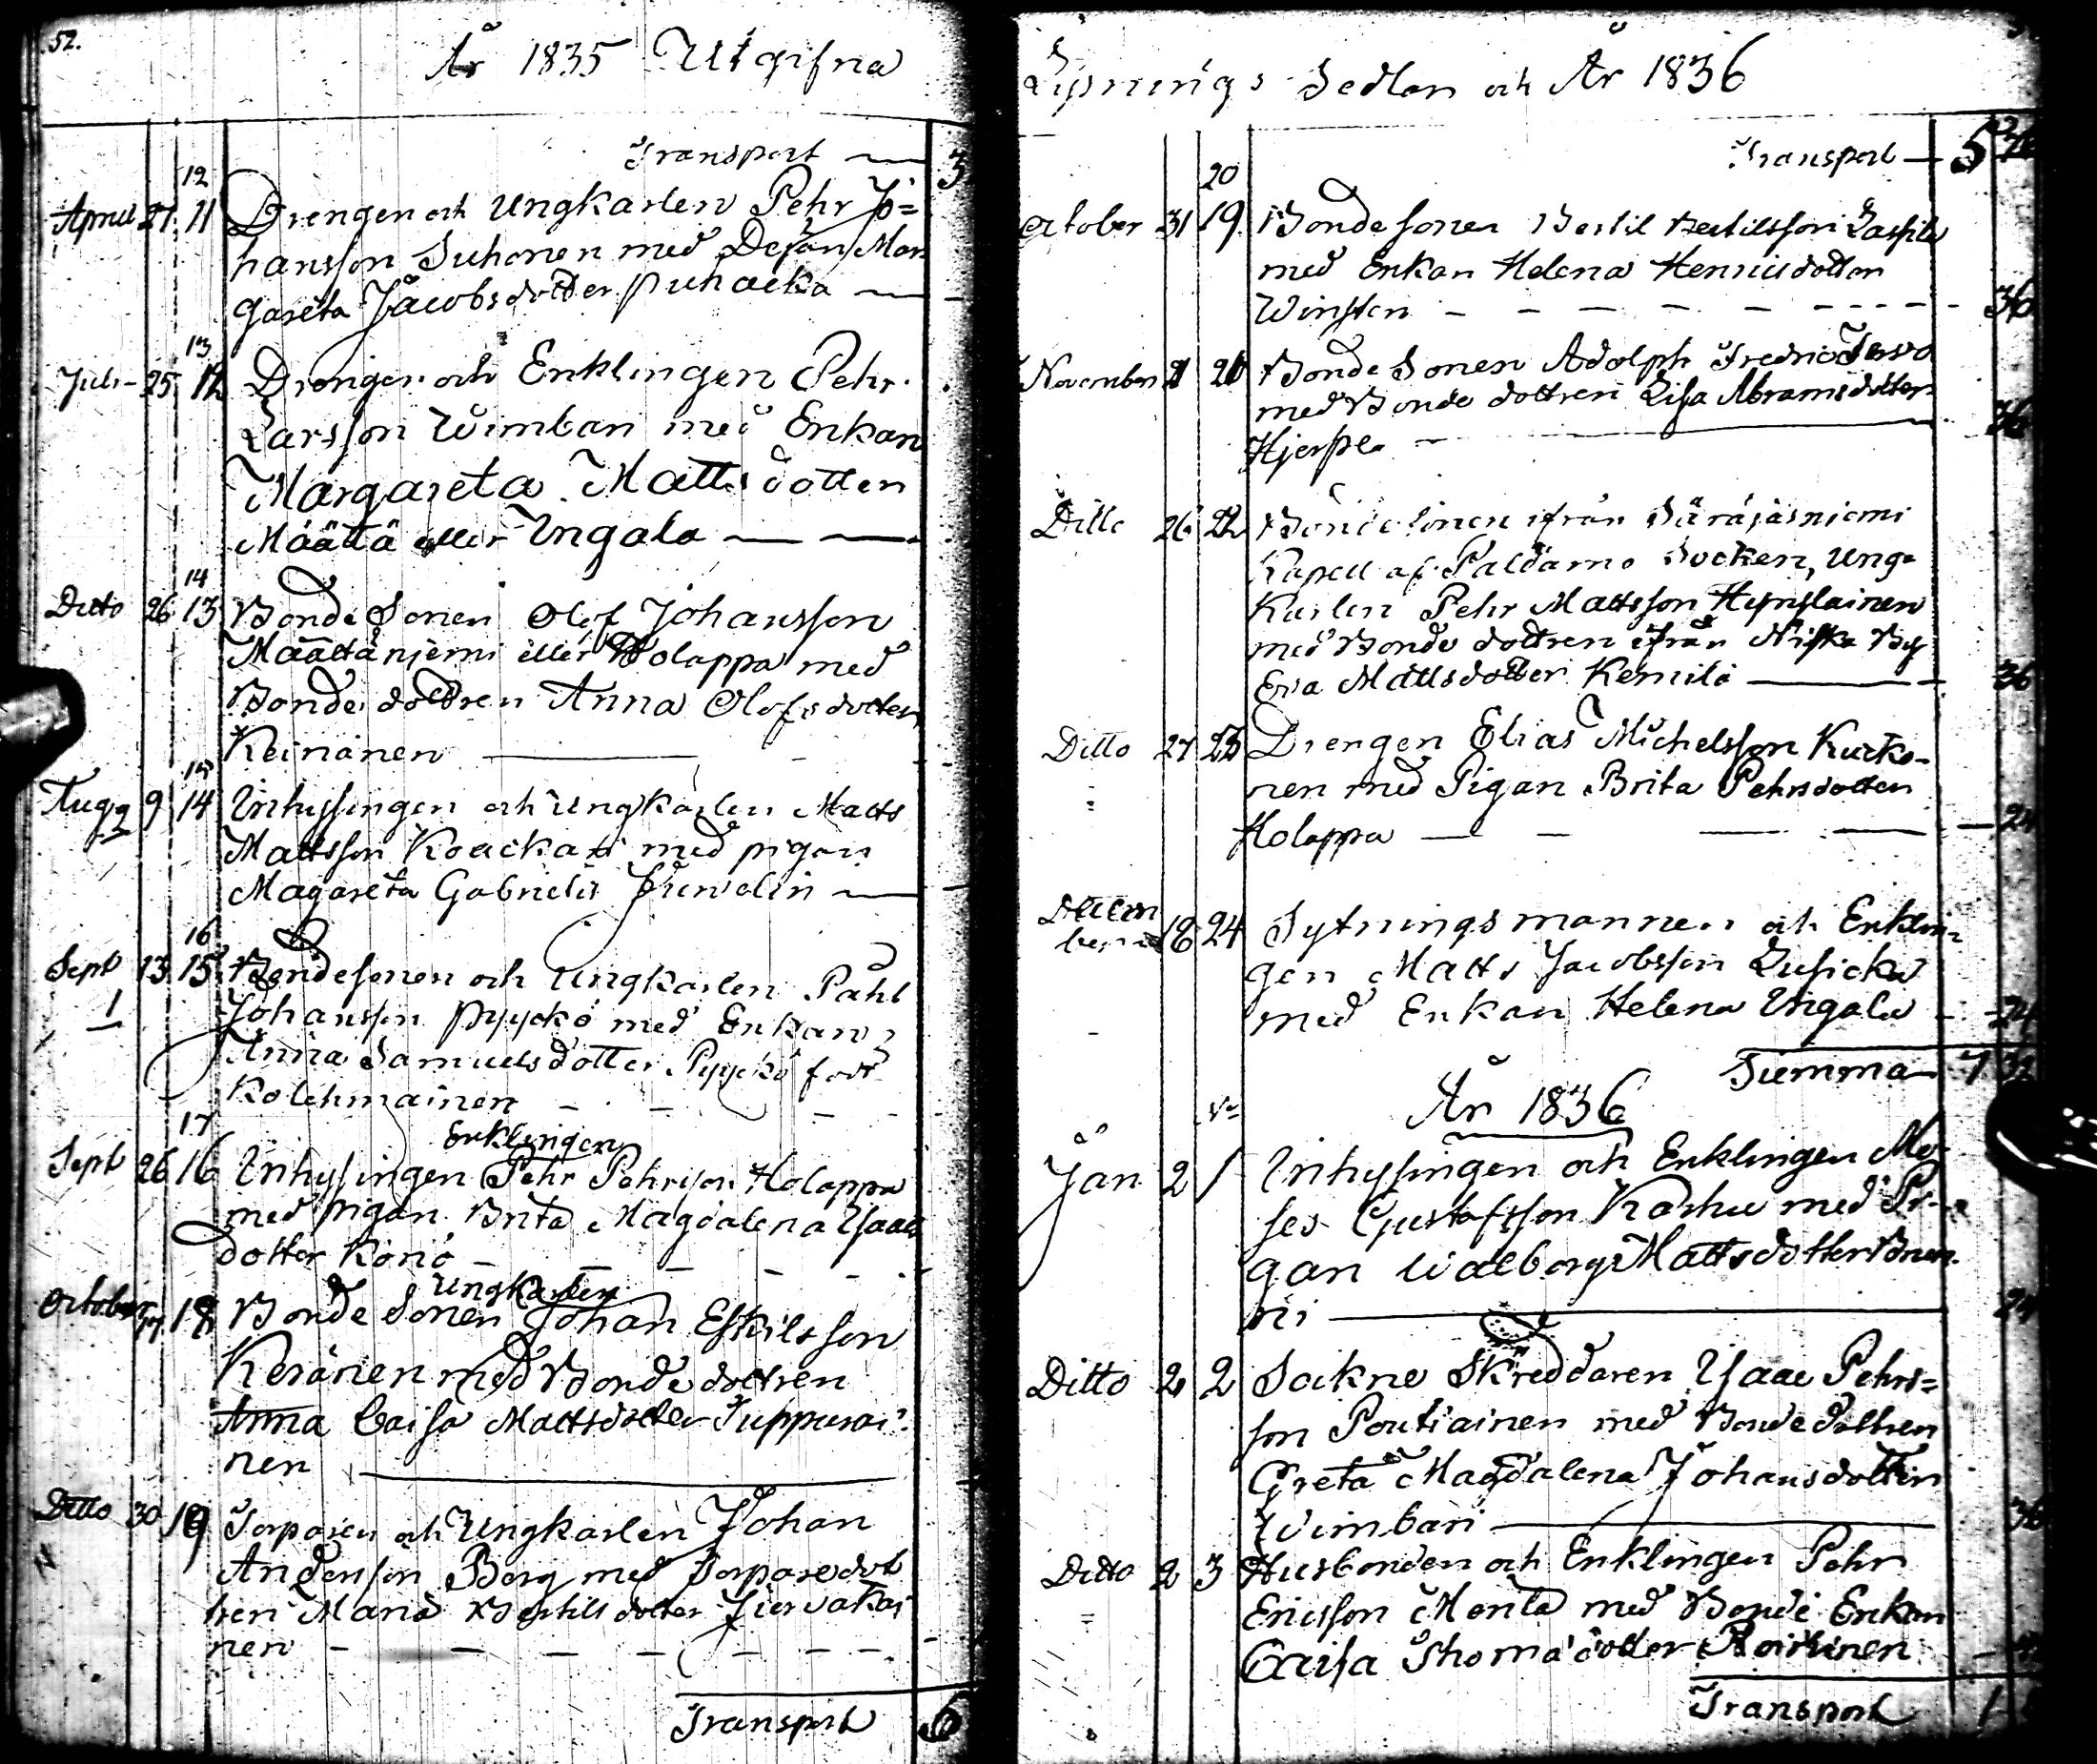 52.
År 1835 Utgifna
Transport — 3
12
April 27. 11 Drengen och Ungkarlen Pehr Jo=
hansson Juhonen med Dejan Mar
gareta Jacobsdotter Puhacka —
13
Juli - 25 12 Drengen och Enklingen Pehr
Larsson Wimbari med Enkan
Margareta Mattsdotter
Määttä eller Ungala — —
14
Ditto 26 13 Bonde Sonen Olof Johansson
Määttäniemi eller Holappa med
Bonde dottren Anna Olofsdotter
Keinänen —
15
Aug 9 14 Inhysingen och Ungkarlen Matts
Mattsson Koackari med pigan
Magareta Gabrielsd
16
Sept 13 15 Bondesonen och Ungkarlen Påhl
1
Johansson Pyyckö med Enkan
Anna Samuelsdotter Pyyckö född
Kolehmainen — — — —
17
Enklingen
Sept 26 16 Inhysingen Pehr Pehrsson Holappa
med pigan Brita Magdalena Isaacs
dotter Könö — — — —
Ungkarlen
October 18 Bonde Sonen Johan Eskilsson
Keränen med Bonde dottren
Anna Caisa Mattsdotter Tuppurai
nen —
Ditto 30 19 Torparen och Ungkarlen Johan
Andersson Berg med Torparedot
tren Maria Bertilsdotter Jurvakai
nen — — — — —
Transport 6
Lysnings Sedlar och År 1836
Transport — 5
20
October 31 19 Bondesonen Bertil Bertilsson
med Enkan Helena Henricsdotter
Winsten — — — — — 36
November 21 Bonde Sonen Adolph Fredric Tervo
med Bonde dottren Lisa Abramsdotter
Hjerpe — 36
Ditto 26 22 Bonde Sonen ifrån Säräisniemi
Kapell af Paldamo Socken, Ung=
Karlen Pehr Mattsson Hyvylainen
med Bonde dottren ifrån Niska By
Eva Mattsdotter Kemilä — 36
Ditto 27 23 Drengen Elias Michelsson Kurko-
nen med Pigan Brita Pehrsdotter
Holappa — — — — 24
Decem
ber 18 24 Sytningsmannen och Enklin
gen Matts Jacobsson Lusicka
med Enkan Helena Ungala — 24
Summa 7 32
År 1836
Jan 2 1 Inhysingen och Enklingen Mo-
ses Gustafsson Karhu med Pi-
gan Walborg Mattsdotter
ni — 24
Ditto 2 2 Sockne Skreddaren Isaac Pehrs=
son Poutiainen med Bonde dottren
Greta Magdalena Johansdotter
Wimbari — 36
Ditto 2 3 Husbonden och Enklingen Pehr
Ericsson Mentä med Bonde Enkan
Caisa Thomasdotter
Transport 1